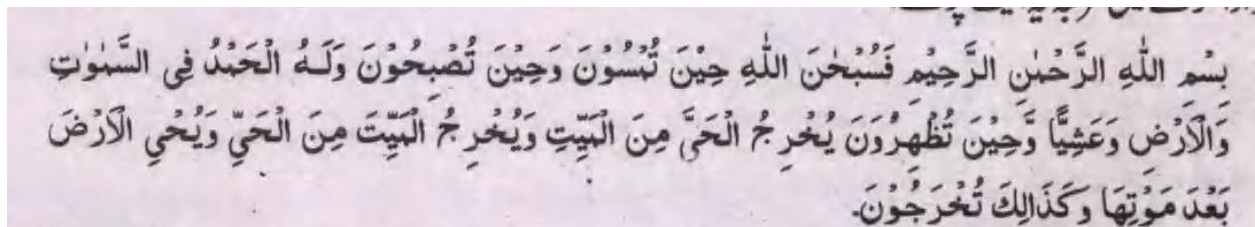 بِسْمِ اللّٰهِ الرَّحْمٰنِ الرَّحِيْمِ فَسُبْحٰنَ اللّٰهِ حِيْنَ تُمْسُوْنَ وَحِيْنَ تُصْبِحُوْنَ وَلَهُ الْحَمْدُ فِى السَّمٰوٰتِ
وَالْاَرْضِ وَعَشِيًّا وَّحِيْنَ تُظْهِرُوْنَ يُخْرِجُ الْحَىَّ مِنَ الْمَيِّتِ وَيُخْرِجُ الْمَيِّتَ مِنَ الْحَيِّ وَيُحْيِ الْاَرْضَ
بَعْدَ مَوْتِهَا وَكَذَالِكَ تُخْرَجُوْنَ۔